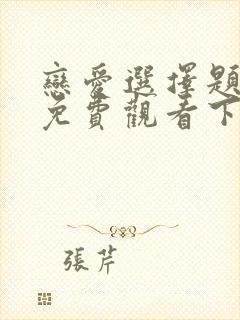 戀愛選擇題
免費觀看下
張芹